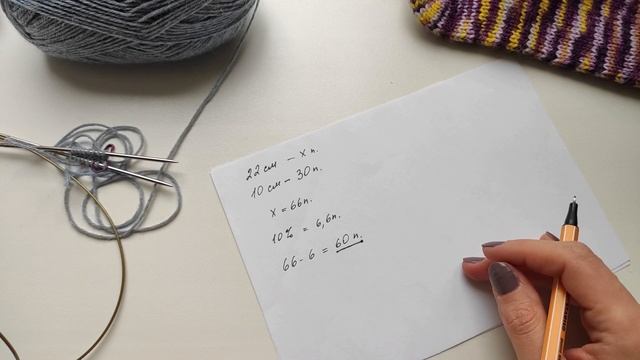 22 см – x п.
10 см – 30п.
x = 66п.
10% = 6,6п.
66 - 6 = 60 п.